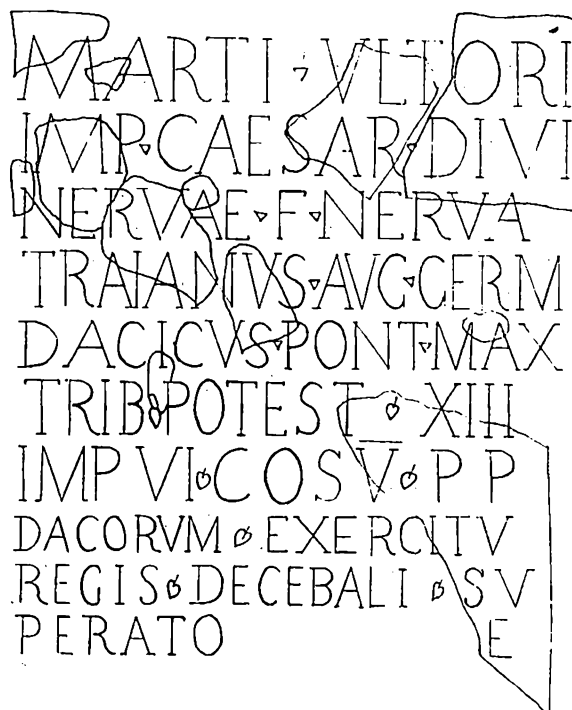 MARTI · VLTORI
IMP · CAESAR · DIVI
NERVAE · F · NERVA
TRAIANVS · AVG · GERM
DACICVS · PONT · MAX
TRIB · POTEST · XIII
IMP VI · COS V · P P
DACORVM · EXERCITV
REGIS · DECEBALI · SV
PERATO E